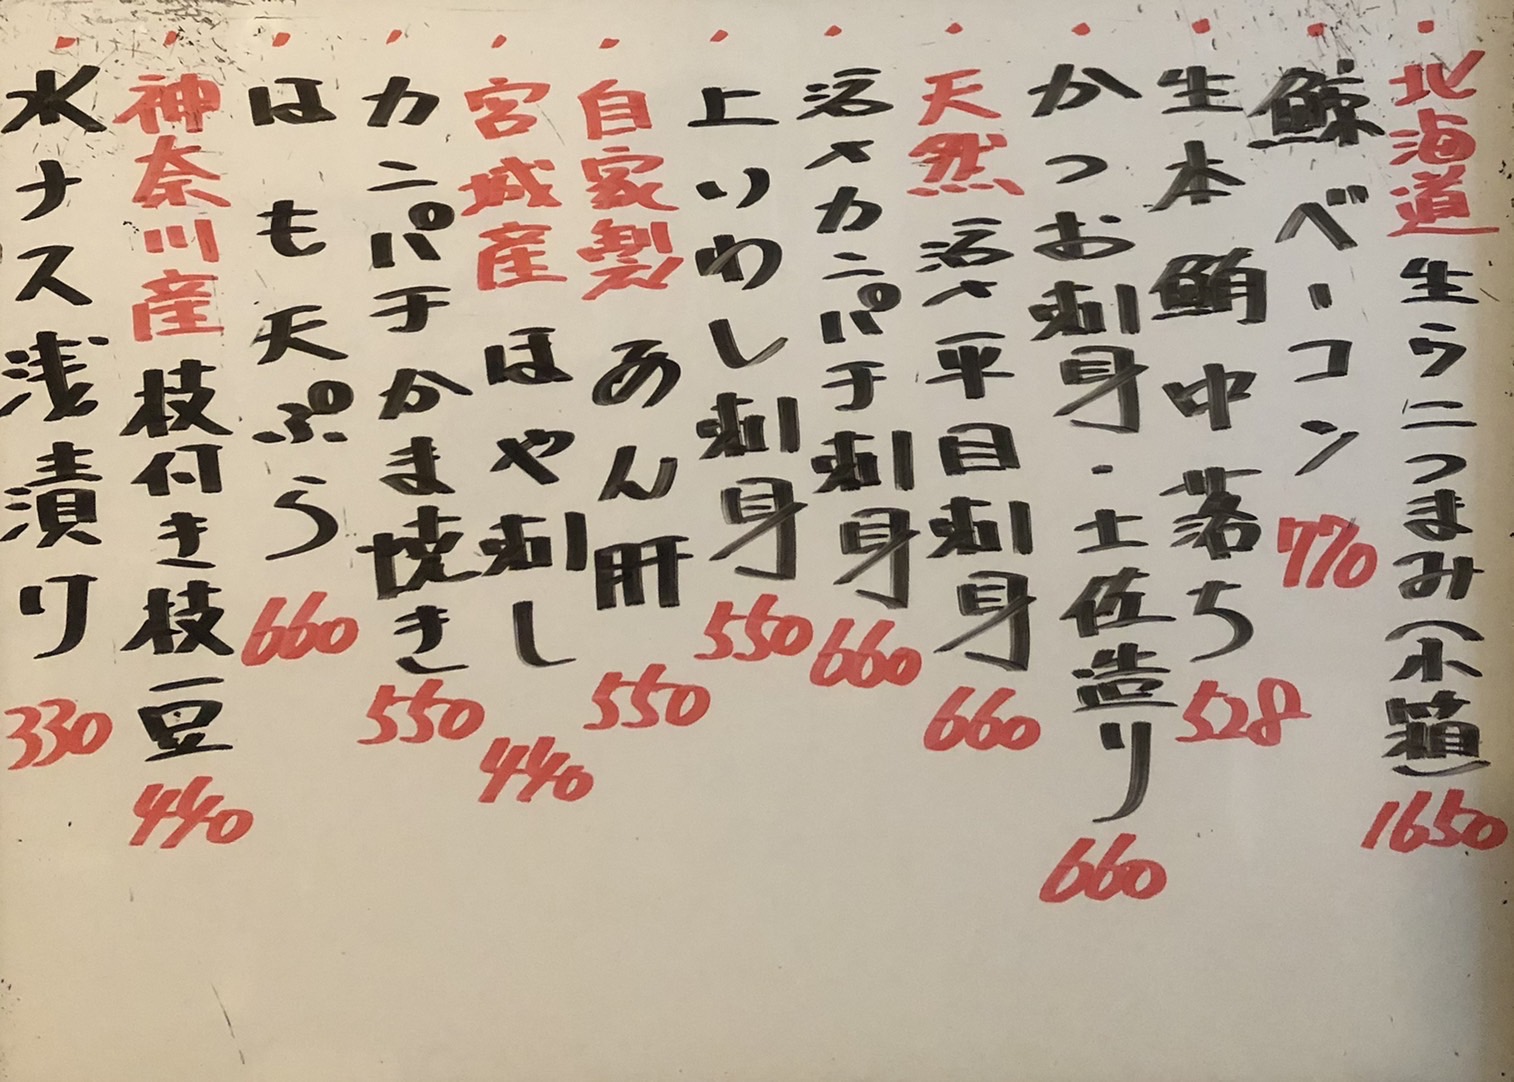 ・北海道 生ウニつまみ(小箱) 1650
・鯨ベーコン 770
・生本鮪中落ち 528
・かつお刺身・土佐造り 660
・天然 活〆平目刺身 660
・活〆カンパチ刺身 660
・上いわし刺身 550
・自家製 あん肝 550
・宮城産 ほや刺し 440
・カンパチかま焼き 550
・はも天ぷら 660
・神奈川産 枝付き枝豆 440
・水ナス浅漬り 330